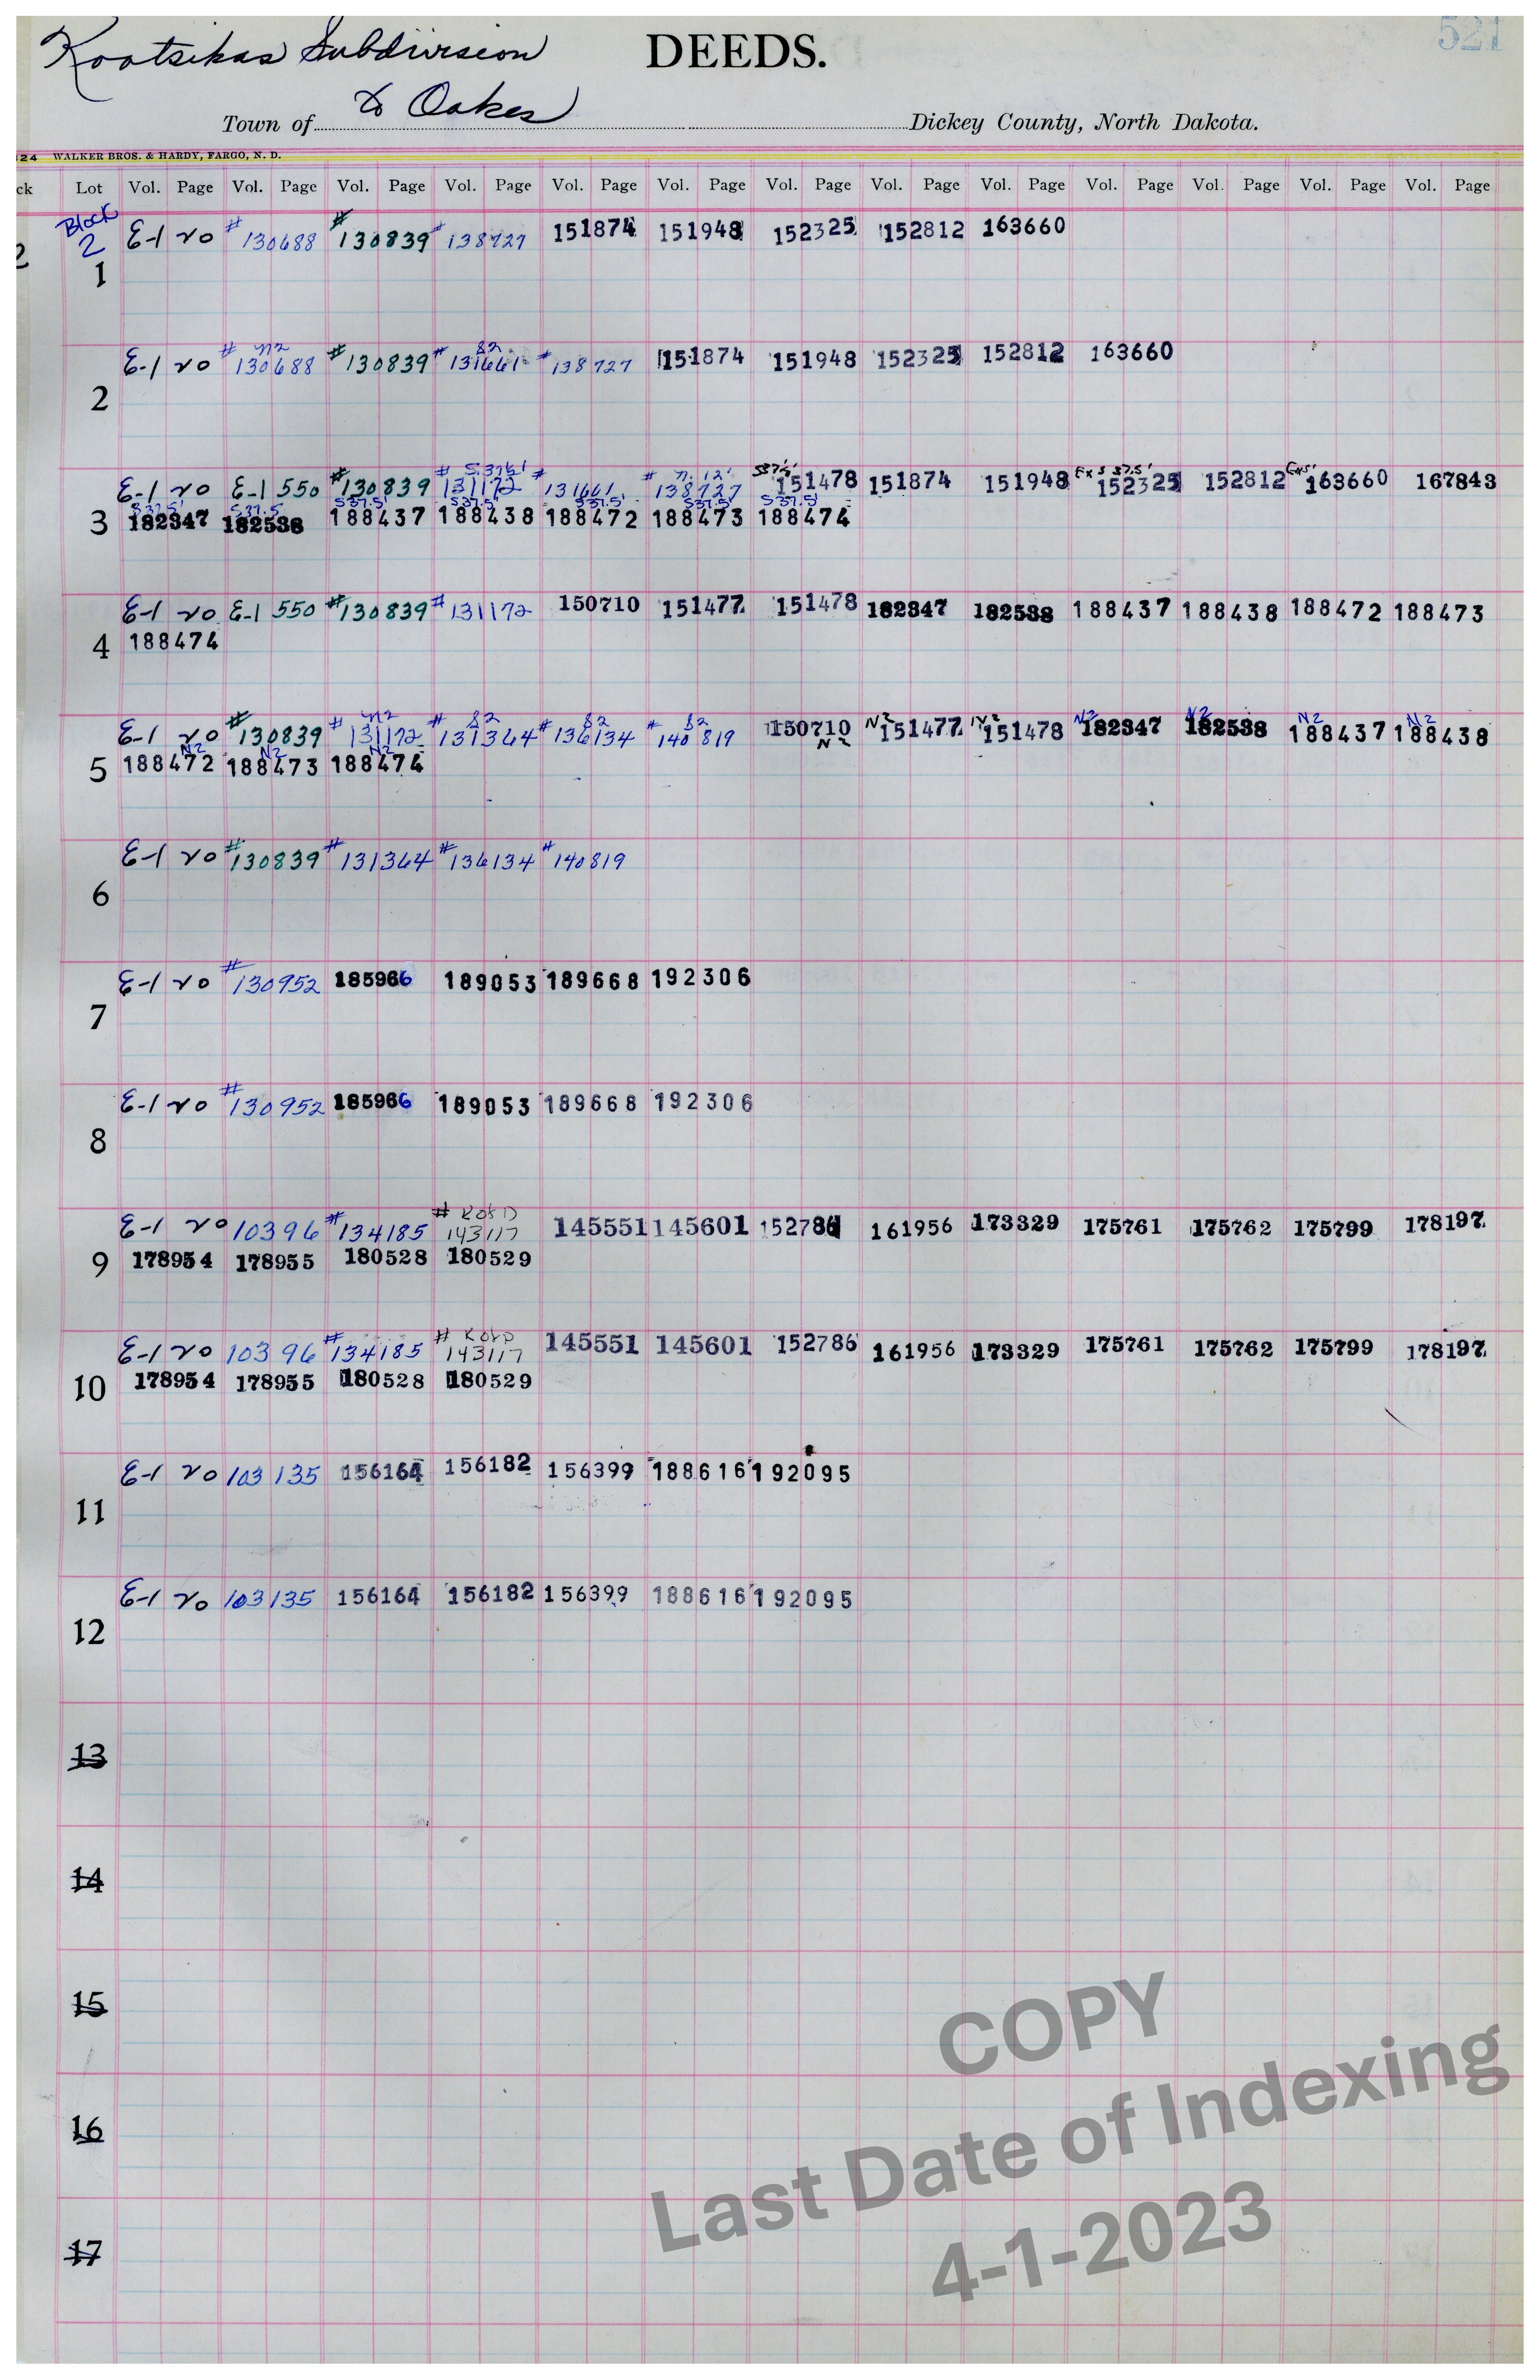 521
Kootsikas Subdivision DEEDS.
Town of to Oakes Dickey County, North Dakota.
24 WALKER BROS. & HARDY, FARGO, N. D.
ck Lot Vol. Page Vol. Page Vol. Page Vol. Page Vol. Page Vol. Page Vol. Page Vol. Page Vol. Page Vol. Page Vol. Page Vol. Page Vol. Page
Block
2 2 E-1 20 #130688 #130839 #138727 151874 151948 152325 152812 163660
1
N2 S2
E-1 20 #130688 #130839 #131661 #138727 151874 151948 152325 152812 163660
2
S.37½' N. 12' S37.5' Ex S 37.5' Ex S'
E-1 20 E-1 550 #130839 #131172 #131661 #138727 151478 151874 151948 152325 152812 163660 167843
S37.5' S37.5 S37.5' S37.5' S37.5' S37.5' S37.5'
3 182347 182538 188437 188438 188472 188473 188474
E-1 20 E-1 550 #130839 #131172 150710 151477 151478 182347 182538 188437 188438 188472 188473
4 188474
N2 S2 S2 S2 N2 N2 N2 N2 N2 N2
E-1 20 #130839 #131172 #131364 #136134 #140819 150710 151477 151478 182347 182538 188437 188438
N2 N2 N2 N2
5 188472 188473 188474
E-1 20 #130839 #131364 #136134 #140819
6
E-1 20 #130952 185966 189053 189668 192306
7
E-1 20 #130952 185966 189053 189668 192306
8
# KofD
E-1 20 103 96 #134185 143117 145551 145601 152786 161956 173329 175761 175762 175799 178197
9 178954 178955 180528 180529
# KofD
E-1 20 103 96 #134185 143117 145551 145601 152786 161956 173329 175761 175762 175799 178197
10 178954 178955 180528 180529
E-1 20 103 135 156164 156182 156399 188616 192095
11
E-1 20 103 135 156164 156182 156399 188616 192095
12
13
14
15
16
17
COPY
Last Date of Indexing
4-1-2023